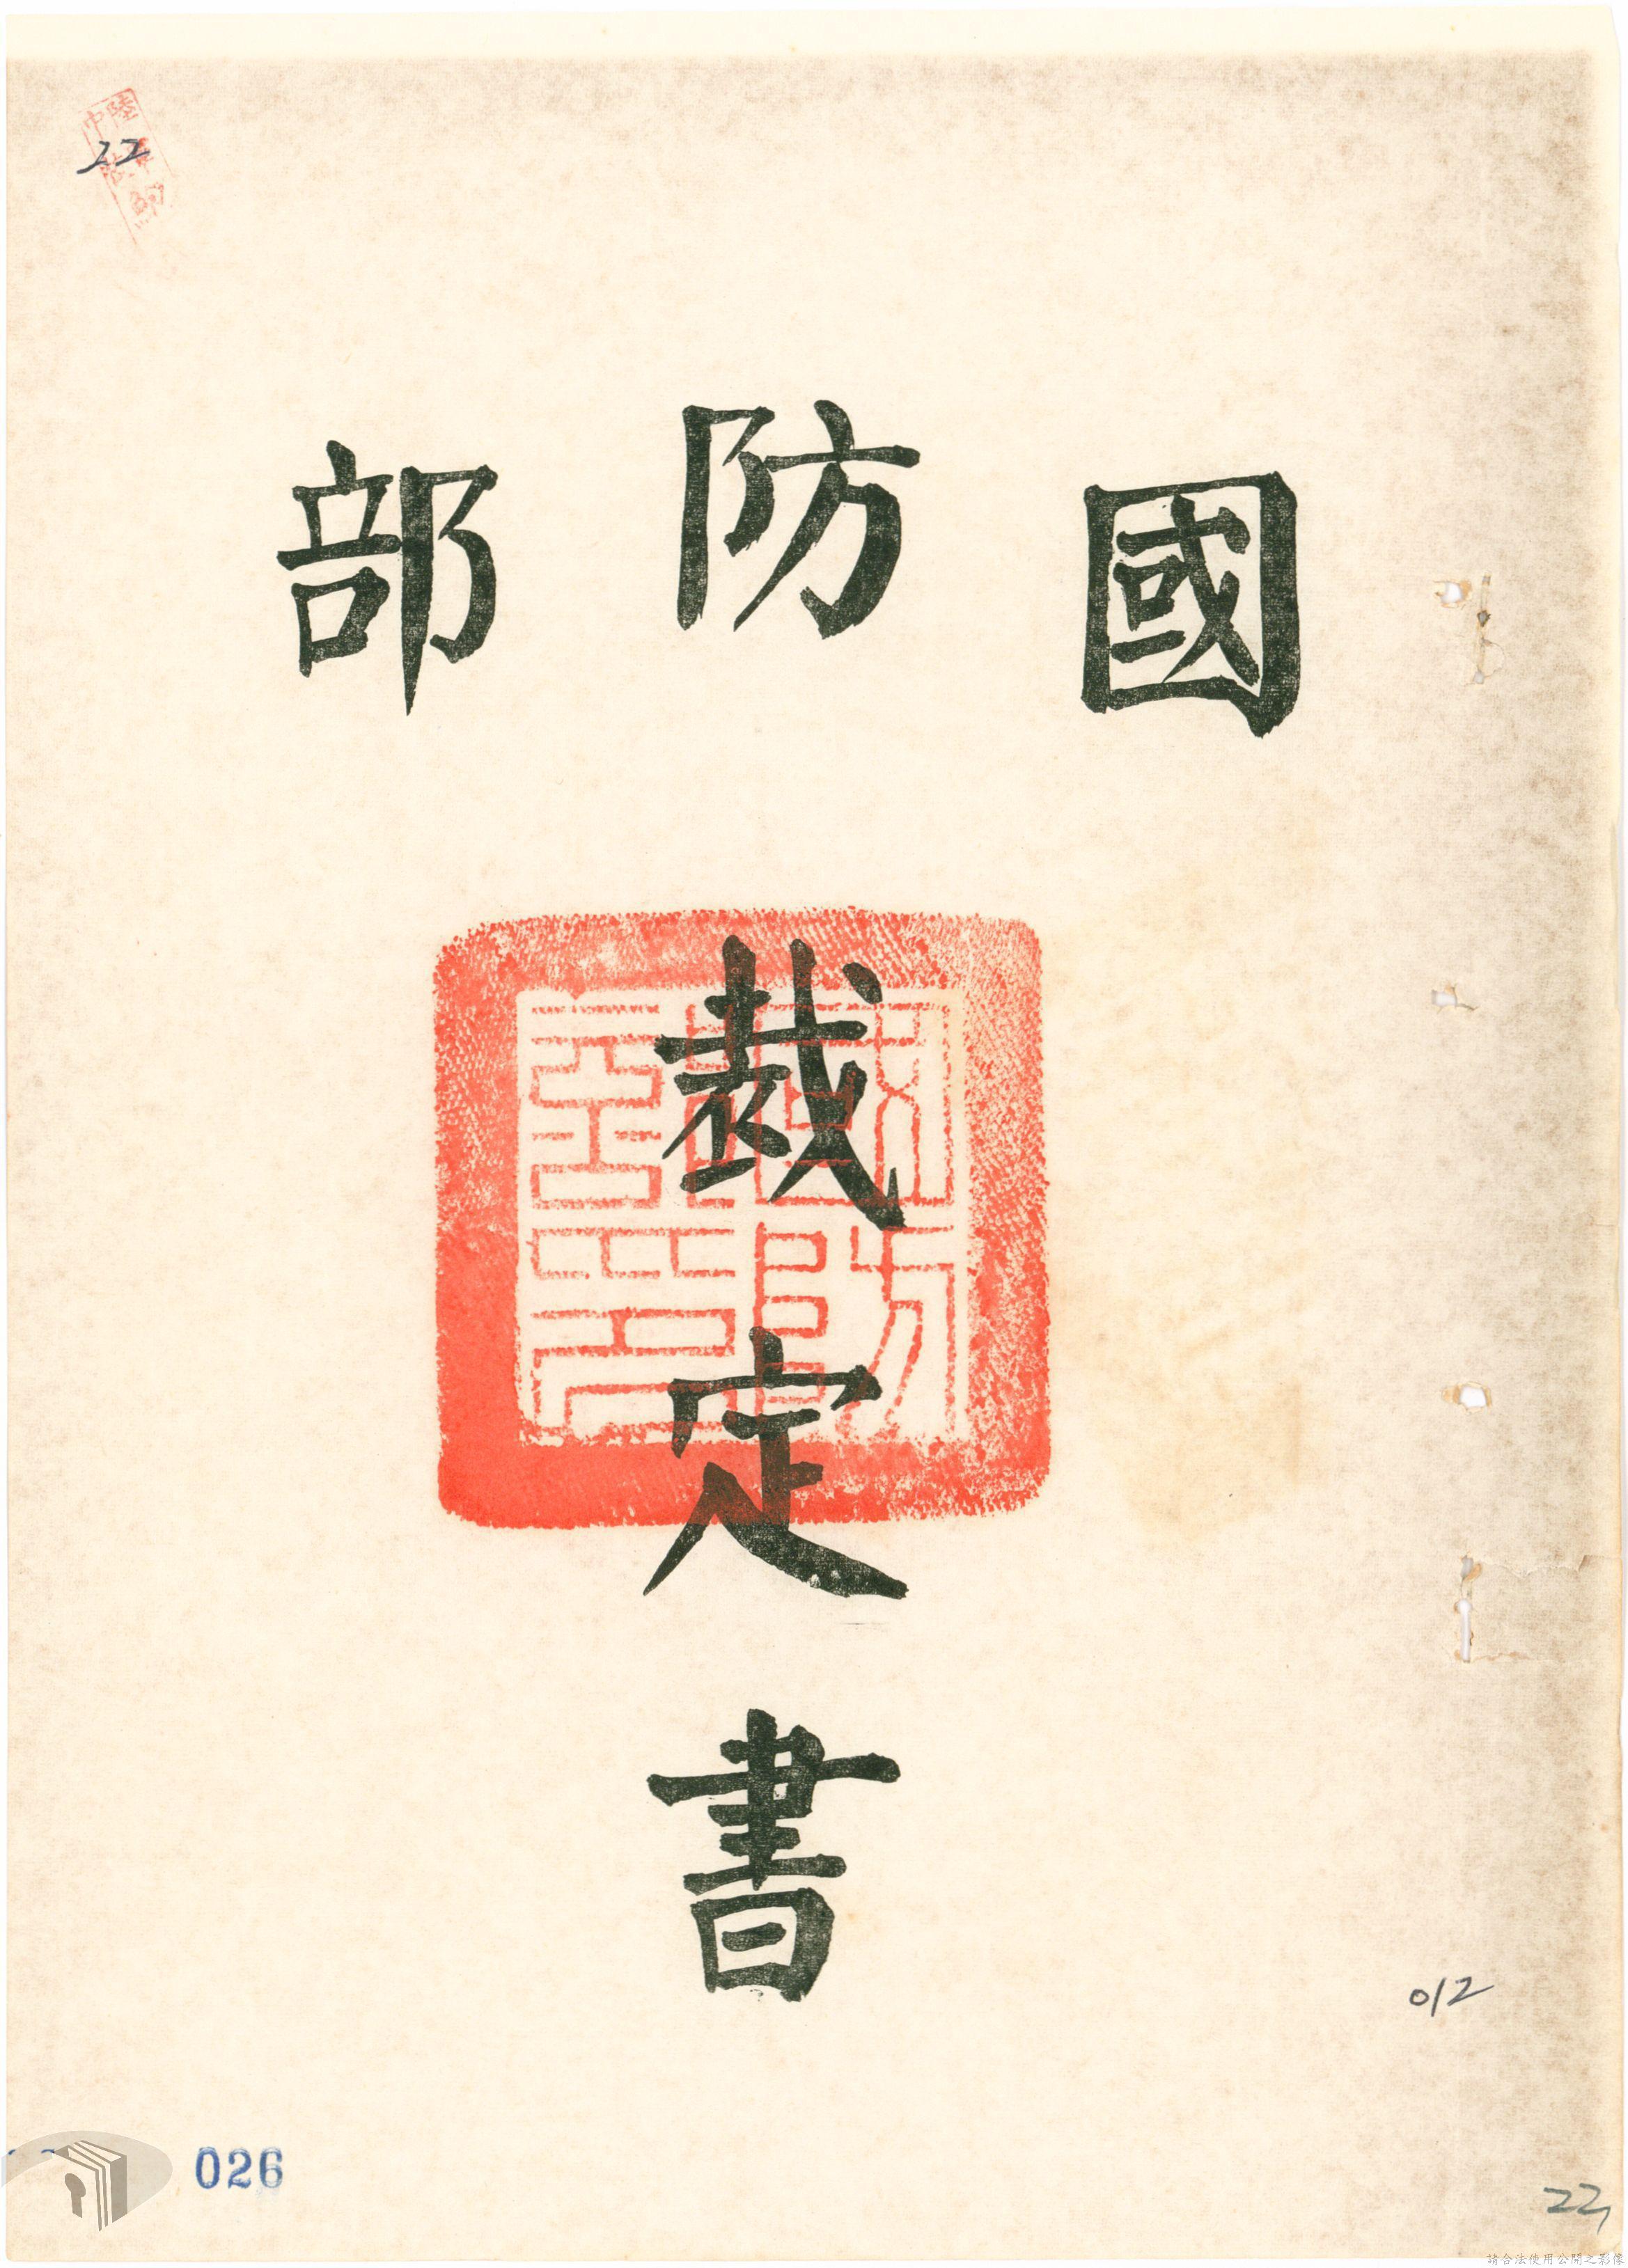 22
國防部
裁定書
012
026
22
請合法使用公開之影像